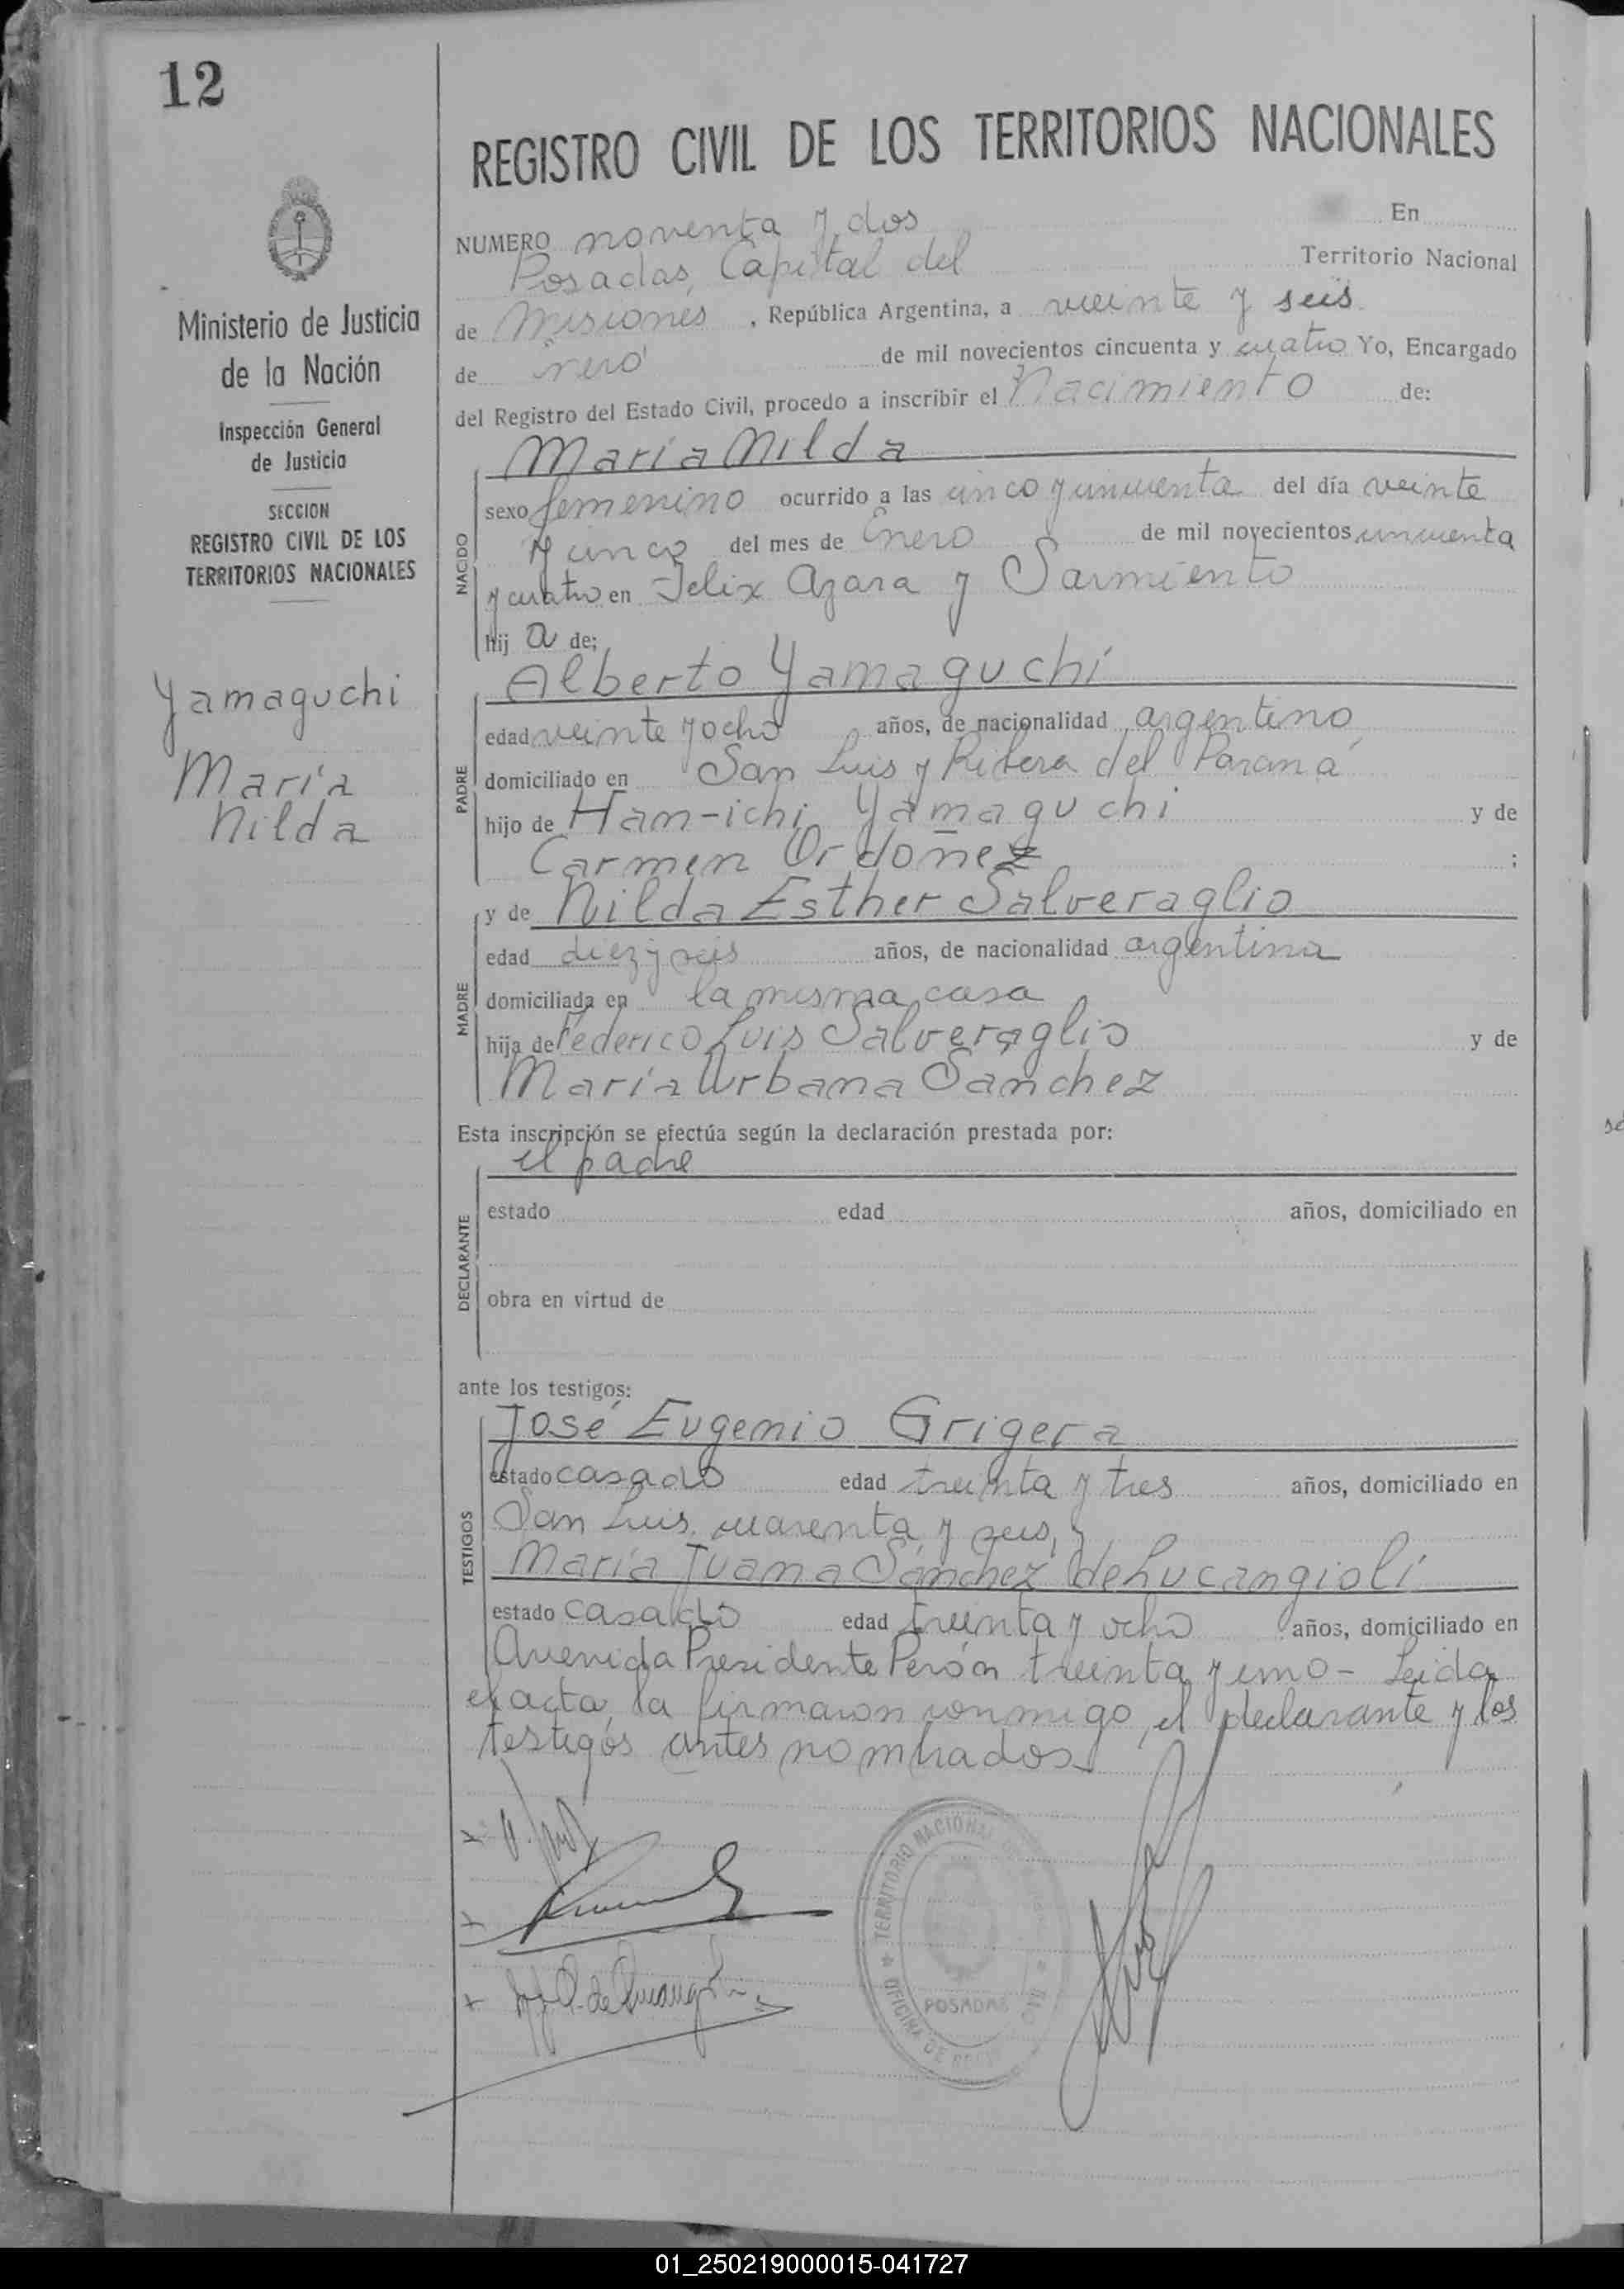 12
REGISTRO CIVIL DE LOS TERRITORIOS NACIONALES
Ministerio de Justicia
de la Nación
Inspección General
de Justicia
SECCION
REGISTRO CIVIL DE LOS
TERRITORIOS NACIONALES
Yamaguchi
María
Nilda
NUMERO noventa y dos En
Posadas, Capital del Territorio Nacional
de Misiones, República Argentina, a veinte y seis
de nero de mil novecientos cincuenta y cuatro Yo, Encargado
del Registro del Estado Civil, procedo a inscribir el Nacimiento de:
NACIDO
María Nilda
sexo femenino ocurrido a las cinco y cincuenta del día veinte
y cinco del mes de Enero de mil novecientos cincuenta
y cuatro en Felix Azara y Sarmiento
hij a de:
PADRE
Alberto Yamaguchi
edad veinte y ocho años, de nacionalidad argentino
domiciliado en San Luis y Ribera del Paraná
hijo de Han-ichi Yamaguchi y de
Carmen Ordoñez ;
MADRE
y de Nilda Esther Salveraglio
edad diez y seis años, de nacionalidad argentina
domiciliada en la misma casa
hija de Federico Luis Salveraglio y de
María Urbana Sanchez
Esta inscripción se efectúa según la declaración prestada por:
DECLARANTE
el padre
estado edad años, domiciliado en
obra en virtud de
ante los testigos:
TESTIGOS
José Eugenio Grigera
estado casado edad treinta y tres años, domiciliado en
San Luis cuarenta y seis, y
María Juana Sánchez de Lucangioli
estado casado edad treinta y ocho años, domiciliado en
Avenida Presidente Perón treinta y uno - Leida
el acta, la firmaron conmigo, el declarante y los
testigos antes nombrados
TERRITORIO NACIONAL
POSADAS
OFICINA DE
01_250219000015-041727